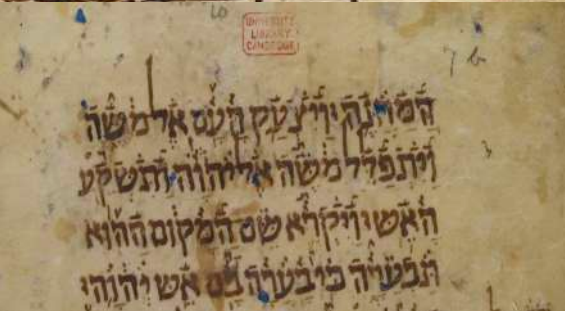 UNIVERSITY
LIBRARY
CAMBRIDGE
המחנה ויצעק העם אל משה
ויתפלל משה אל יהוה ותשקע
האש ויקרא שם המקום ההוא
תבערה כי בערה בם אש יהוה